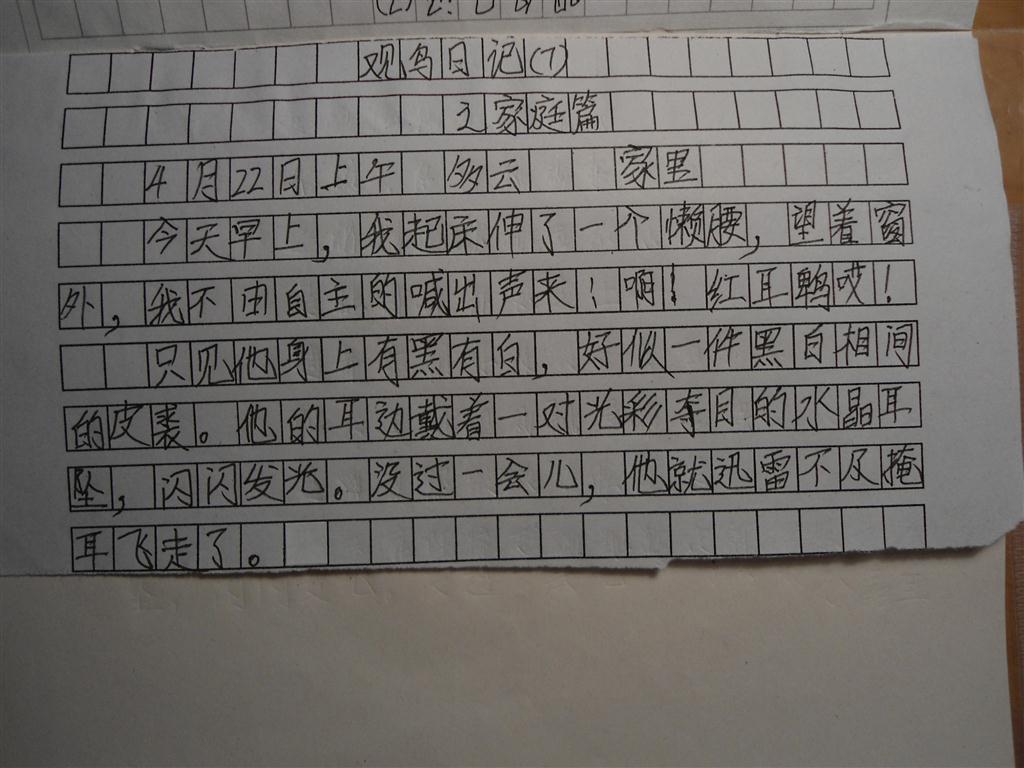 观鸟日记(7)
之家庭篇
4月22日上午 多云 家里
今天早上,我起床伸了一个懒腰,望着窗
外,我不由自主的喊出声来!啊!红耳鹎哎!
只见他身上有黑有白,好似一件黑白相间
的皮裹。他的耳边戴着一对光彩夺目的水晶耳
坠,闪闪发光。没过一会儿,他就迅雷不及掩
耳飞走了。